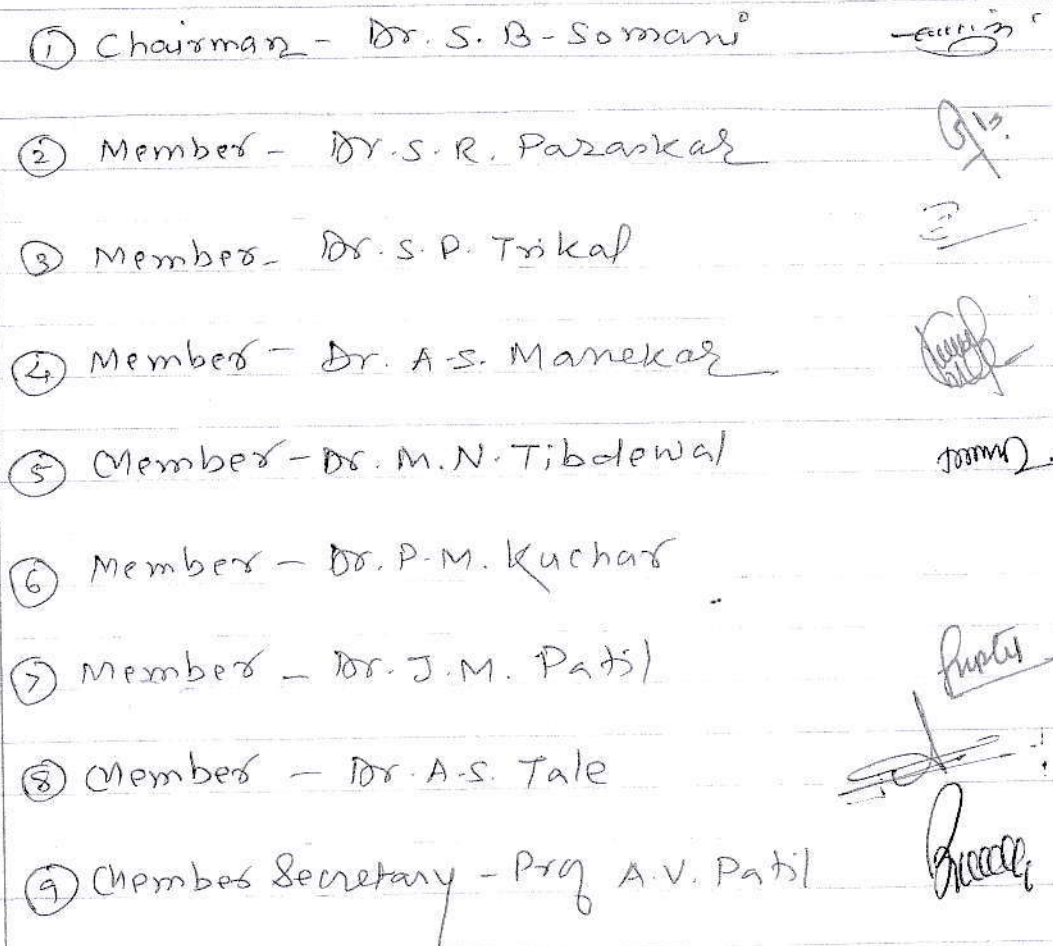 ① Chairman - Dr. S. B - Somani
② Member - Dr. S. R. Paraskar
③ Member - Dr. S. P. Trikal
④ Member - Dr. A. S. Manekar
⑤ Member - Dr. M. N. Tibdewal
⑥ Member - Dr. P. M. Kuchar
⑦ Member - Dr. J. M. Patil
⑧ Member - Dr. A. S. Tale
⑨ Member Secretary - Prof A. V. Patil